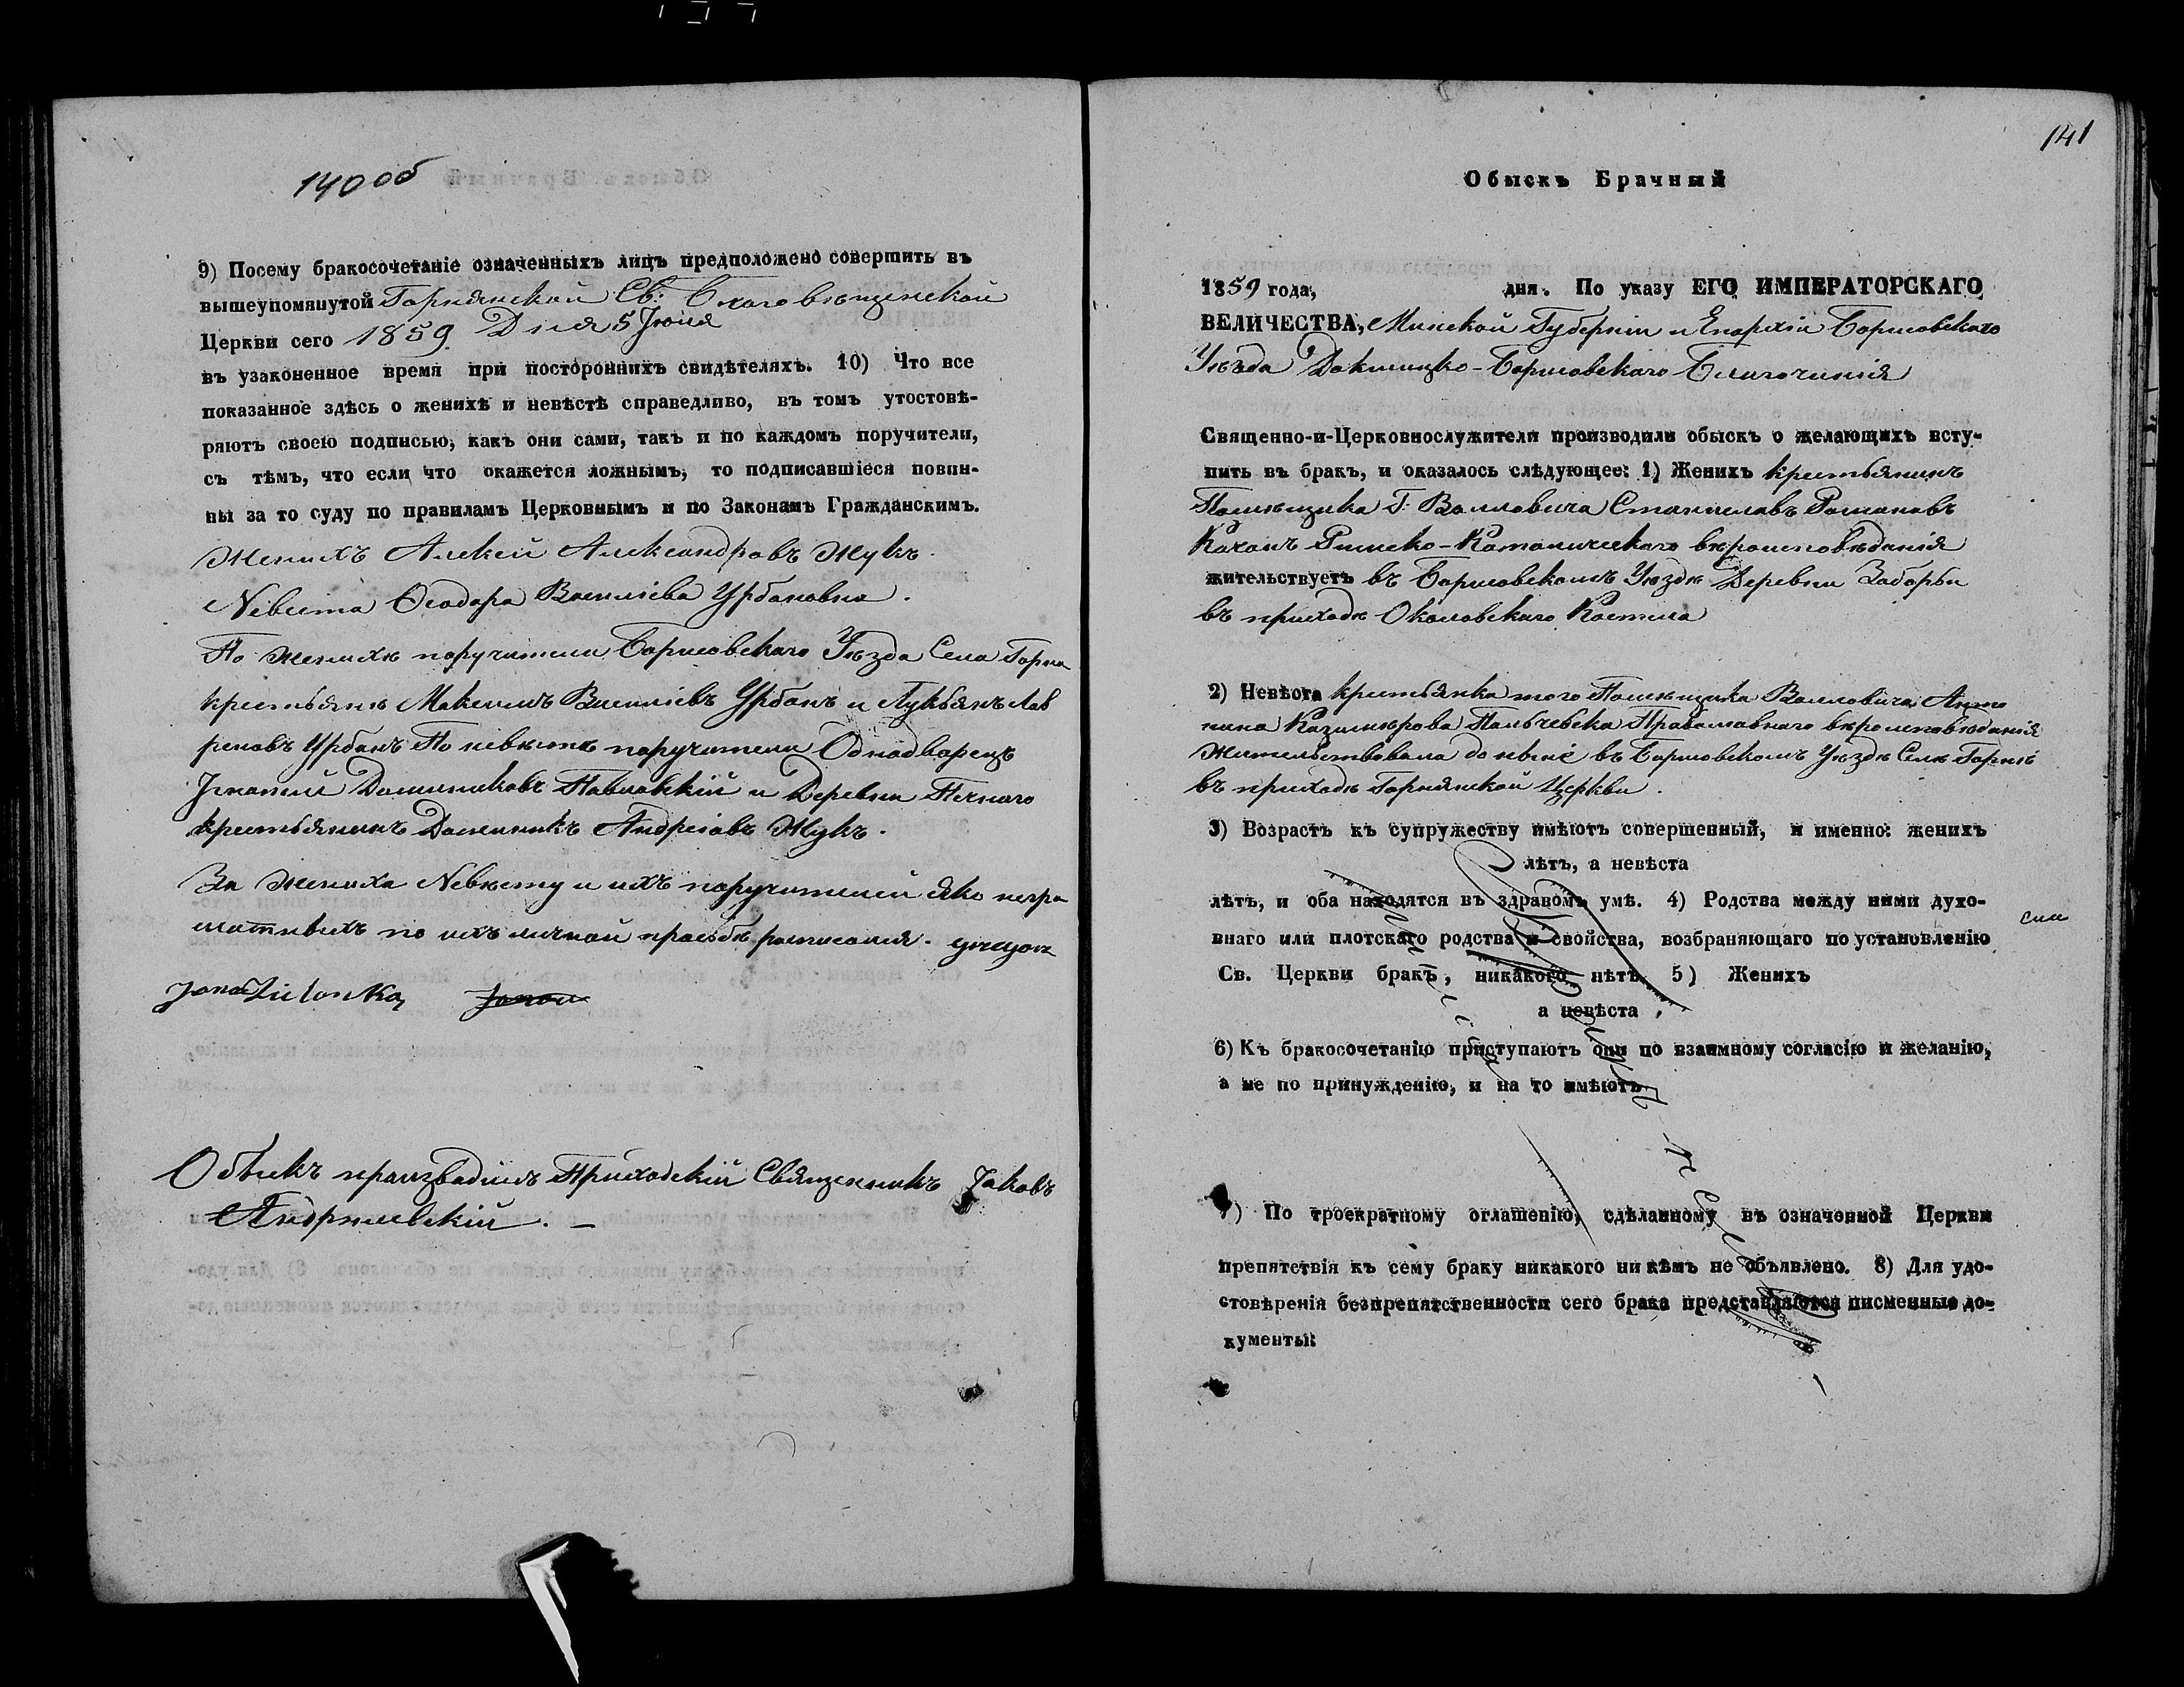 140 об
9) Посему бракосочетаніе означенныхъ лицъ предположено совершить въ
вышеупомянутой Горнянской Св: Благовѣщенской
Церкви сего 1859. Дня 5 Іюня
въ узаконенное время при постороннихъ свидѣтеляхъ. 10) Что все
показанное здѣсь о женихѣ и невѣстѣ справедливо, въ томъ утостовѣ-
ряютъ своею подписью, какъ они сами, такъ и по каждомъ поручители,
съ тѣмъ, что если что окажется ложнымъ, то подписавшіеся повин-
ны за то суду по правиламъ Церковнымъ и по Законамъ Гражданскимъ.
Женихъ Алексій Александровъ Жукъ.
Невѣста Ѳеодора Василіева Урбановна.
По женихѣ поручители Борисовскаго Уѣзда Села Горна
крестьяне Максимъ Василіевъ Урбанъ и Лукьянъ Лав
реновъ Урбанъ По невѣстѣ поручители Однодворецъ
Игнатій Доминиковъ Павловскій и Деревни
крестьянинъ Доминикъ Андреіовъ Жукъ.
За Жениха Невѣсту и ихъ поручителей яко негра
мотныхъ по ихъ личной прозьбѣ росписался.
Обыскъ производилъ Приходскій Священникъ Іаковъ
141
Обыскъ Брачный
1859 года, дня. По указу ЕГО ИМПЕРАТОРСКАГО
ВЕЛИЧЕСТВА, Минской Губерніи и Епархіи Борисовскаго
Уѣзда Докшицко-Борисовскаго Благочинія
Священно-и-Церковнослужители производили обыскъ о желающихъ всту-
пить въ бракъ, и оказалось слѣдующее: 1) Женихъ крестьянинъ
Помѣщика Г: Воловича Станиславъ Романовъ
Коханъ Римско-Католическаго вѣроисповѣданія
жительствуетъ въ Борисовскомъ Уѣздѣ Деревни Заборьи
въ приходѣ Околовскаго Костела
2) Невѣста крестьянка того Помѣщика Воловича Анто
нина Казимирова Пальчевска Православнаго вѣроисповѣданія
Жительствовала до нынѣ въ Борисовскомъ Уѣздѣ Селѣ Горнѣ
въ приходѣ Горнянской Церкви.
3) Возрастъ къ супружеству имѣютъ совершенный, и именно: женихъ
лѣтъ, а невѣста
лѣтъ, и оба находятся въ здравомъ умѣ. 4) Родства между ними духо-
внаго или плотскаго родства и свойства, возбраняющаго по установленію
Св. Церкви бракъ, никакого нѣтъ. 5) Женихъ
а невѣста
6) Къ бракосочетанію приступаютъ они по взаимному согласію и желанію,
а не по принужденію, и на то имѣютъ
7) По троекратному оглашенію, сдѣланному въ означенной Церкви
препятствія къ сему браку никакого ни кѣмъ не объявлено. 8) Для удо-
стовѣренія безпрепятственности сего брака представляются писменные до-
кументы: